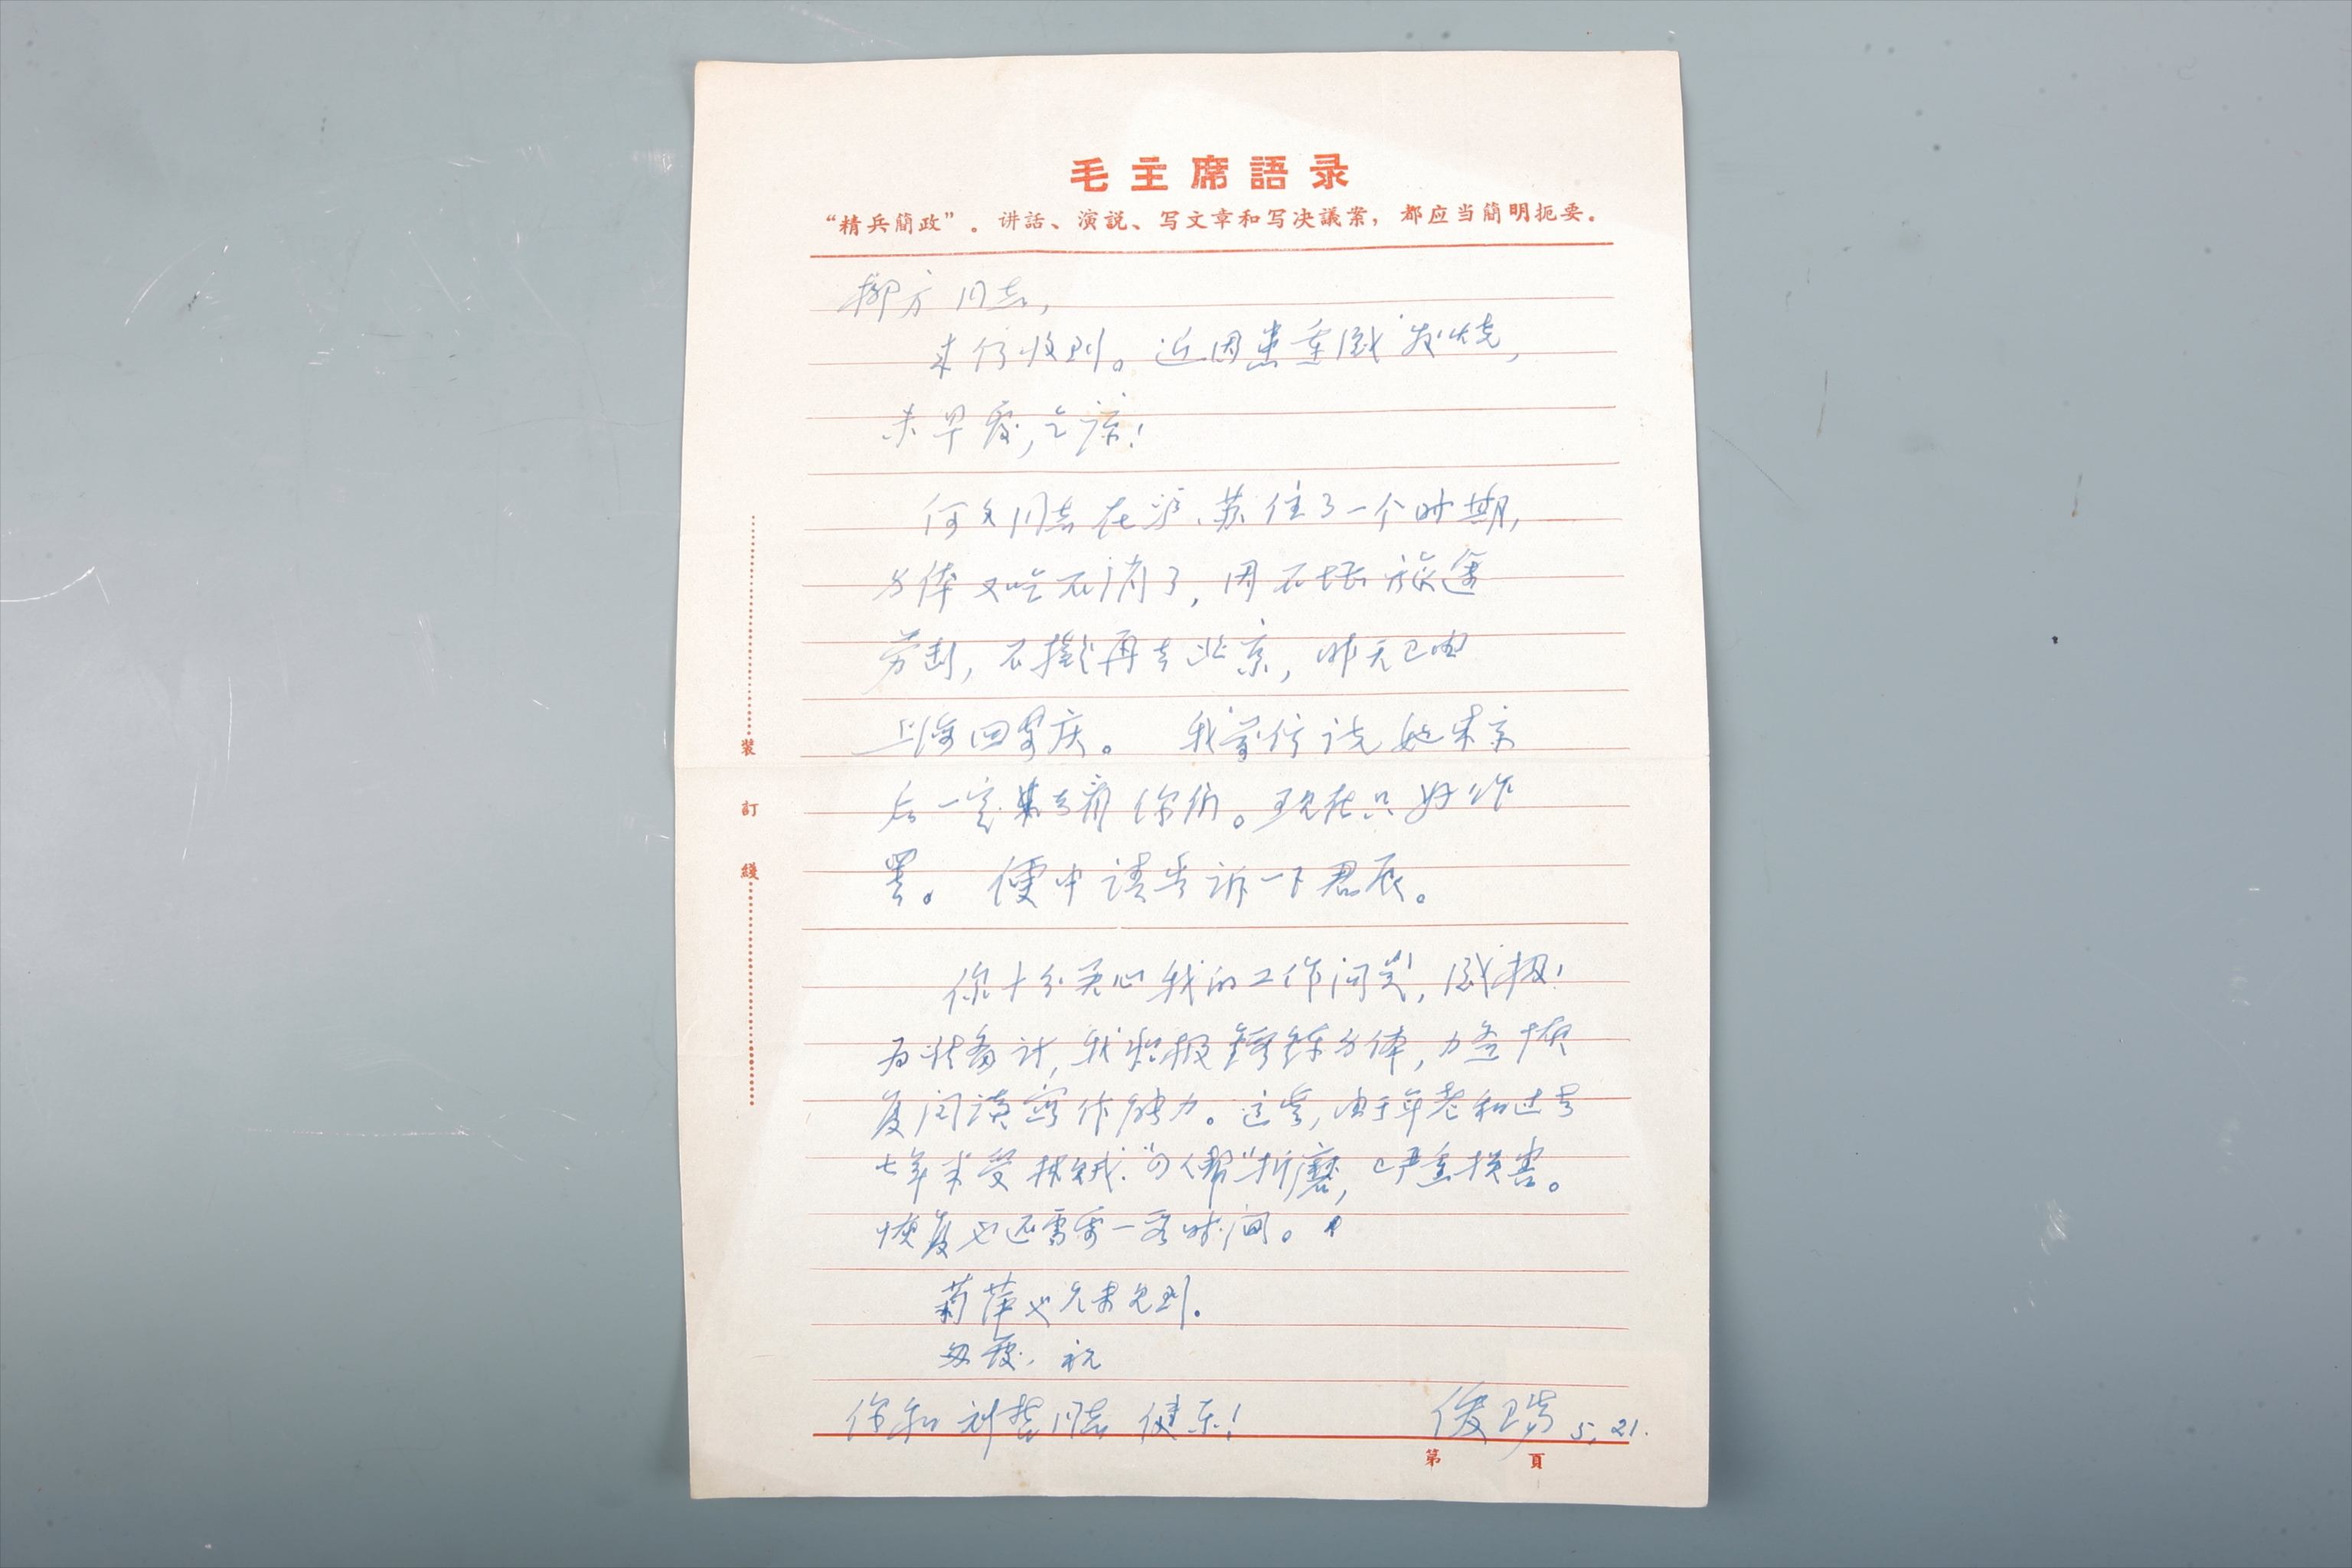 毛主席語录
“精兵簡政”。讲話、演説、写文章和写决議案，都应当簡明扼要。
柳方同志，
来信收到。近因患重感发烧，
未早覆，乞谅！
何文同志在沪、苏住了一个时期，
身体又吃不消了，因不堪旅途
劳累，不拟再去北京，昨天已由
上海回重庆。 我前信说她来京
后一定来看你们。现在只好作
罢。 便中请告诉一下君辰。
你十分关心我的工作问题，感极！
为准备计，我积极锻鍊身体，力争恢
复阅读写作能力。这些，由于年老和过去
七年半受林贼、“四人帮”折磨，已严重损害。
恢复也还需要一客时间。
菊萍也尚未见到。
匆覆，祝
你和刘哲同志健乐！
俊瑞 5,21.
裝
訂
綫
第 頁